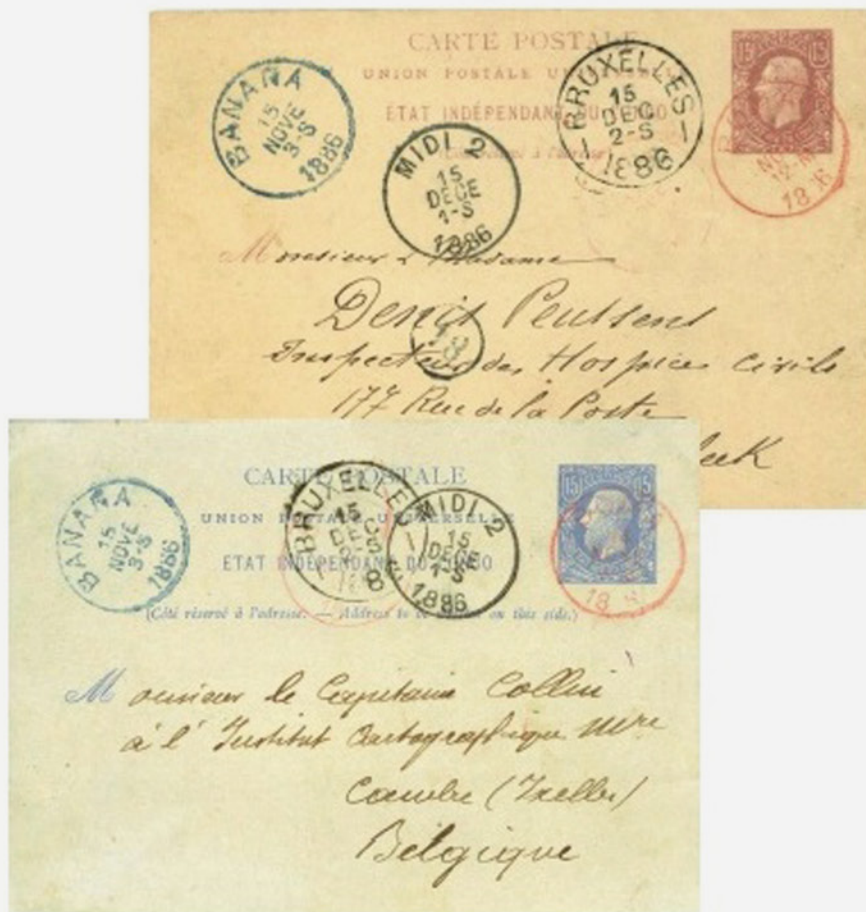 CARTE POSTALE
15 15
UNION POSTALE
ÉTAT INDÉPENDANT DU CONGO
BANANA
15
NOVE
3-S
1886
MIDI 2
15
DECE
1-S
1886
BRUXELLES
15
DEC
2-S
1886
Monsieur & Madame
Denis
18
Inspecteur des Hospices Civils
177 Rue de la Poste
CARTE POSTALE
15 15
UNION POSTALE UNIVERSELLE
ÉTAT INDÉPENDANT DU CONGO
(Côté réservé à l'adresse. — Address to be on this side.)
BANANA
15
NOVE
3-S
1886
BRUXELLES
15
MIDI 2
15
DECE
1-S
1886
18
Monsieur le Capitaine
à l'Institut Cartographique Mre
(Ixelles)
Belgique